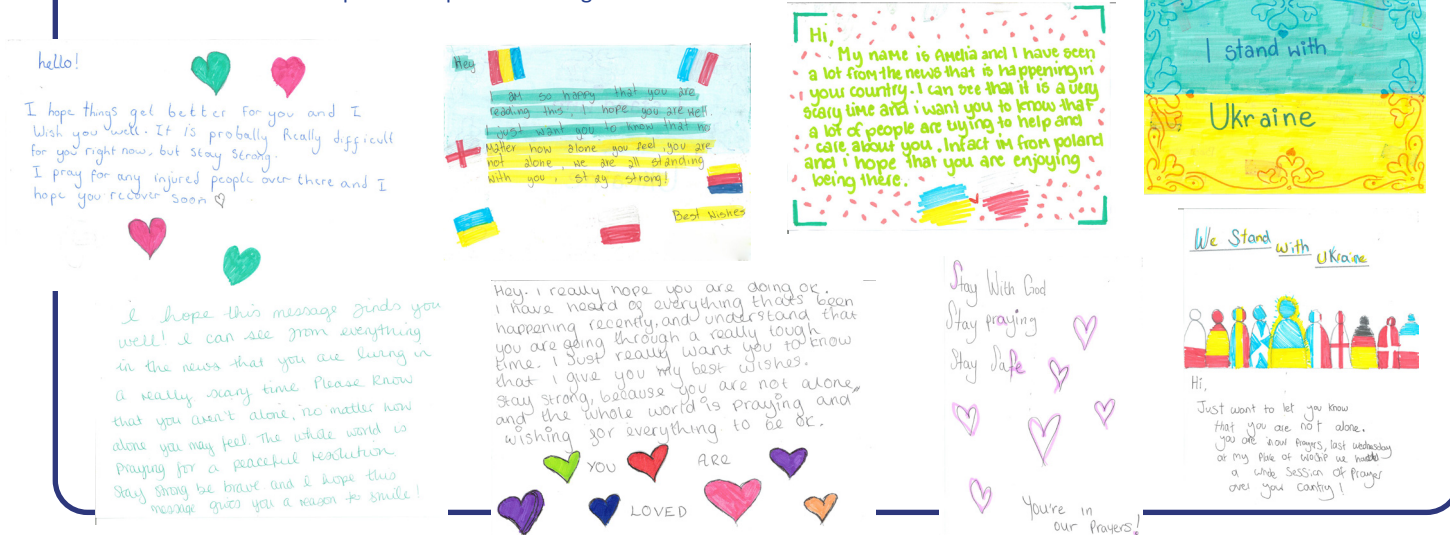 hello!
I hope things get better for you and I
Wish you well. It is probally Really difficult
for you right now, but stay strong.
I pray for any injured people over there and I
hope you recover soon
Hey
I am so happy that you are
reading this, I hope you are well.
I just want you to know that no
matter how alone you feel, you are
not alone, we are all standing
with you, stay strong!
Best Wishes
Hi,
My name is Amelia and I have seen
a lot from the news that is happening in
your country. I can see that it is a very
scary time and i want you to know that
a lot of people are trying to help and
care about you. Infact im from poland
and i hope that you are enjoying
being there.
I stand with
Ukraine
i hope this message finds you
well! i can see from everything
in the news that you are living in
a really scary time Please know
that you aren't alone, no matter how
alone you may feel. The whole world is
praying for a peaceful resolution
Stay strong be brave and i hope this
message gives you a reason to smile!
Hey. i really hope you are doing ok.
i have heard of everything thats been
happening recently, and understand that
you are going through a really tough
time. I just really want you to know
that i give you my best wishes.
Stay strong, because you are not alone,
and the whole world is praying and
wishing for everything to be ok.
YOU ARE
LOVED
Stay With God
Stay praying
Stay Safe
You're in
our Prayers!
We Stand with Ukraine
Hi,
Just want to let you know
that you are not alone.
you are in our Prayers, last wednesday
at my place of
a whole session of Prayer
over your cantry!